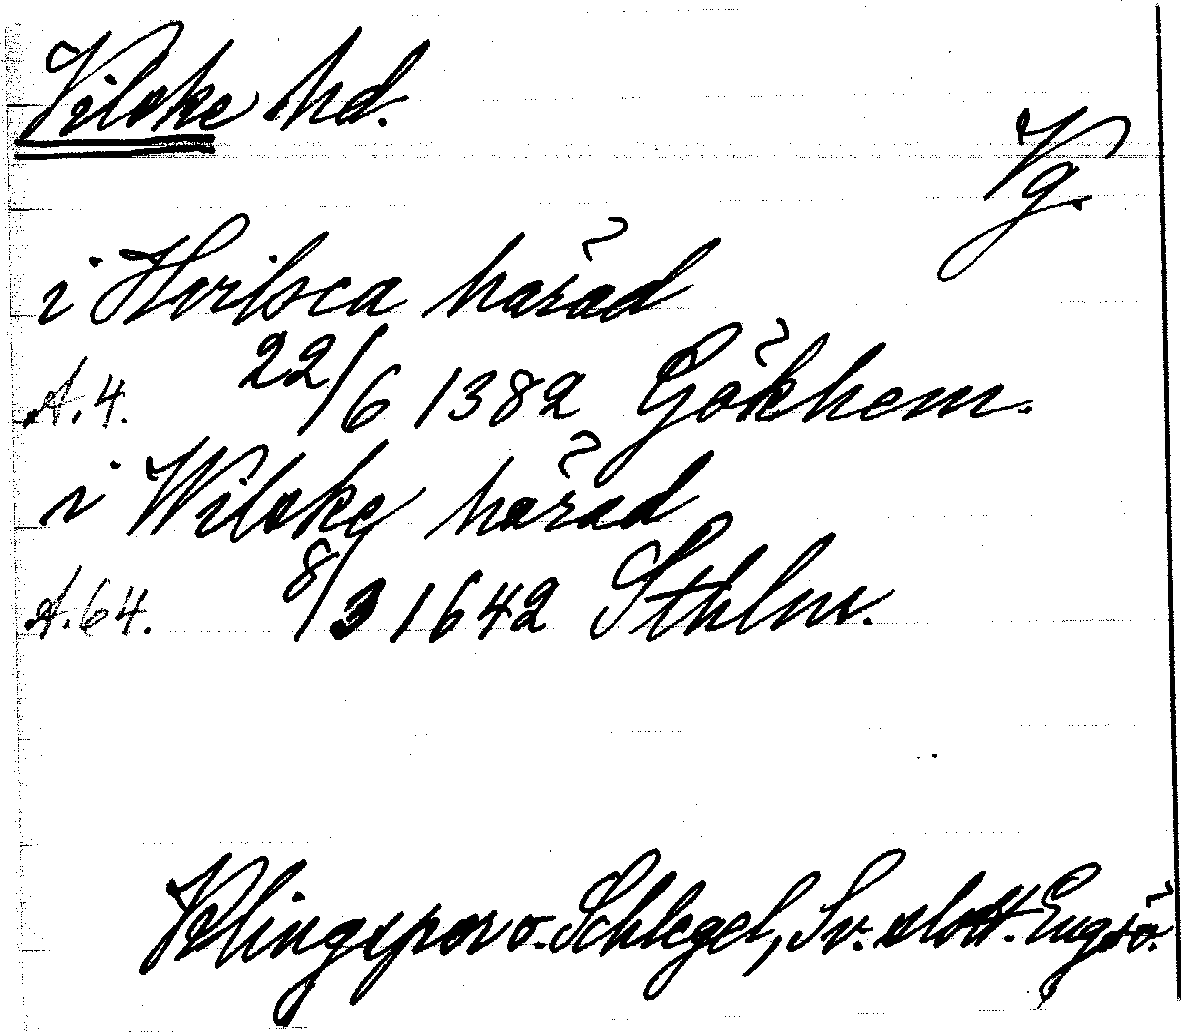 Vilske hd.
Vg.
i Hvilsca härad
A.4. 22/6 1382 Gökhem.
i Wilske härad
A.64. 8/3 1642 Sthlm.
Klingspor o. Schlegel, Sv. slott. Engsö.